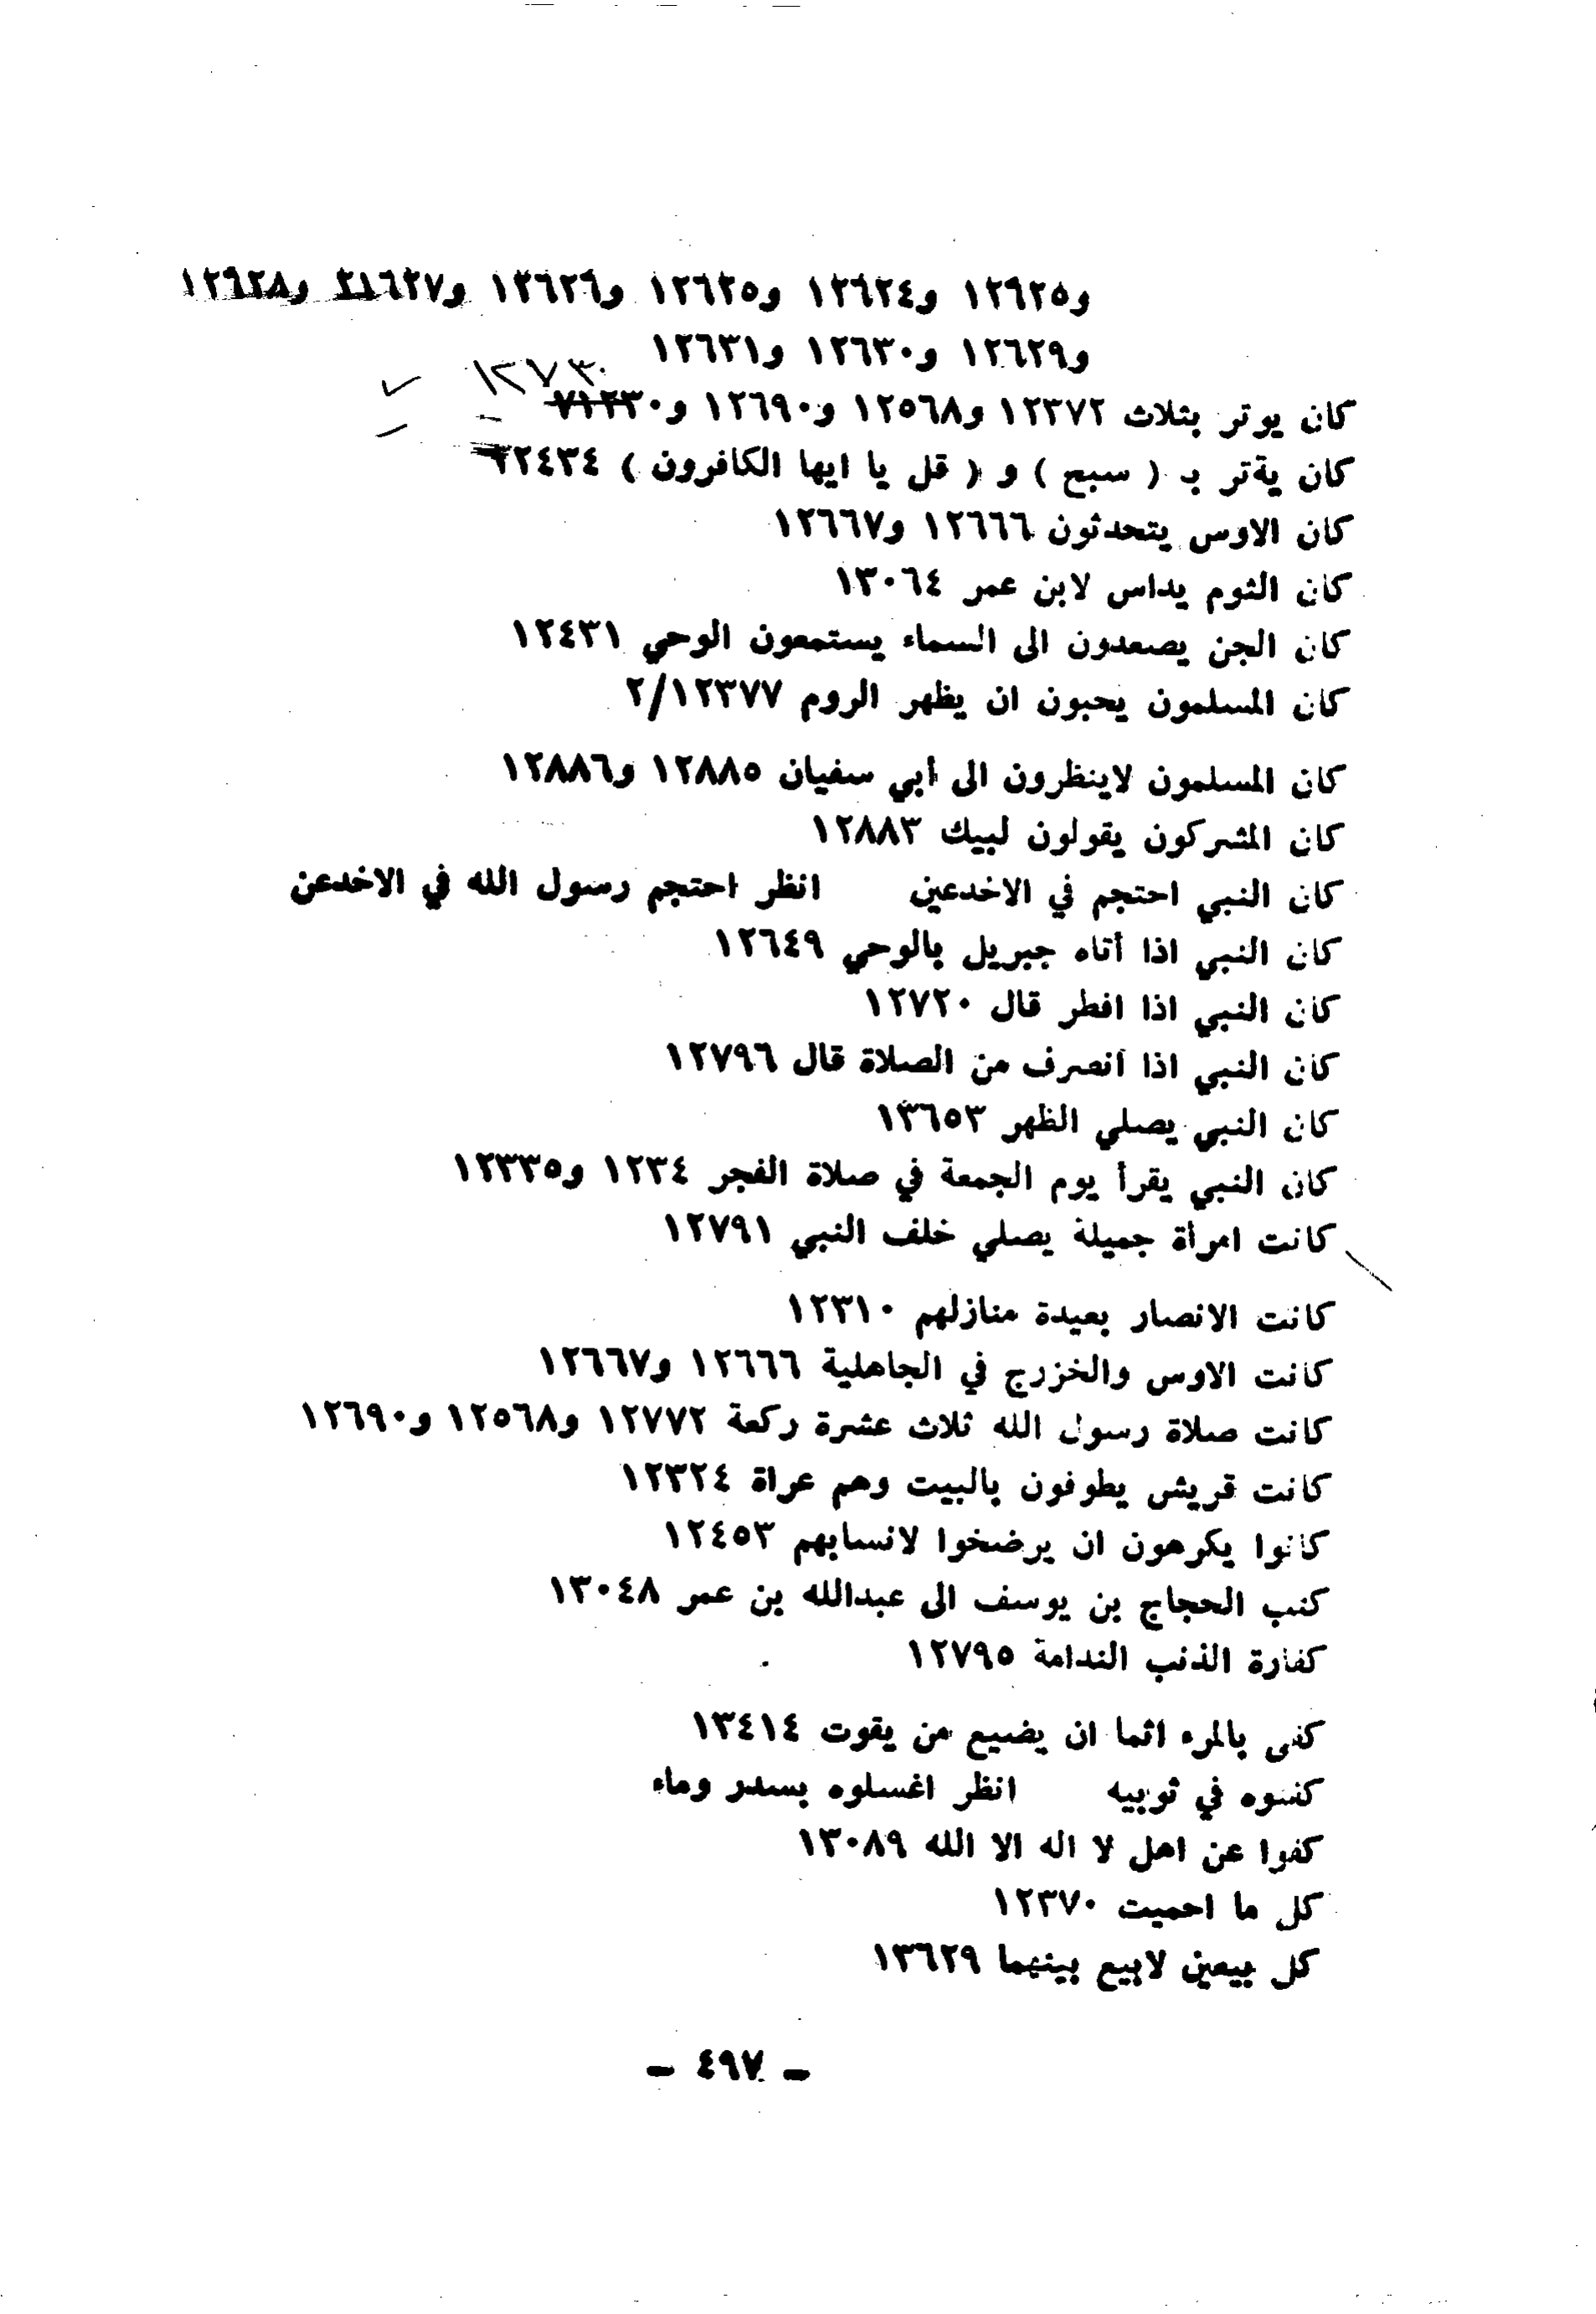 و١٢٩٢٥ و١٢٦٢٤ و١٢٦٢٥ و١٢٦٢٦ و٢١٦٢٧ و١٢٩٢٨
و١٢٦٢٩ و١٢٦٣٠ و١٢٦٣١
١٢٧٣٠
كان يوتر بثلاث ١٢٣٧٢ و١٢٥٦٨ و١٢٦٩٠ و٧١٢٣٠
كان يةتر بـ ( سبح ) و ( قل يا ايها الكافرون ) ١٢٤٣٤
كان الاوس يتحدثون ١٢٦٦٦ و١٢٦٦٧
كان الثوم يداس لابن عمر ١٣٠٦٤
كان الجن يصعدون الى السماء يستمعون الوحي ١٢٤٣١
كان المسلمون يحبون ان يظهر الروم ٢/١٢٣٧٧
كان المسلمون لاينظرون الى أبي سفيان ١٢٨٨٥ و١٢٨٨٦
كان المشركون يقولون لبيك ١٢٨٨٣
كان النبي احتجم في الاخدعين انظر احتجم رسول الله في الاخدعن
كان النبي اذا أتاه جبريل بالوحي ١٢٦٤٩
كان النبي اذا افطر قال ١٢٧٢٠
كان النبي اذا انصرف من الصلاة قال ١٢٧٩٦
كان النبي يصلي الظهر ١٣٦٥٣
كان النبي يقرأ يوم الجمعة في صلاة الفجر ١٢٣٤ و١٢٣٣٥
كانت امرأة جميلة يصلي خلف النبي ١٢٧٩١
كانت الانصار بعيدة منازلهم ١٢٣١٠
كانت الاوس والخزرج في الجاهلية ١٢٦٦٦ و١٢٦٦٧
كانت صلاة رسول الله ثلاث عشرة ركعة ١٢٧٧٢ و١٢٥٦٨ و١٢٦٩٠
كانت قريش يطوفون بالبيت وهم عراة ١٢٣٢٤
كانوا يكرهون ان يرضخوا لانسابهم ١٢٤٥٣
كتب الحجاج بن يوسف الى عبدالله بن عمر ١٣٠٤٨
كفارة الذنب الندامة ١٢٧٩٥
كفى بالمرء اثما ان يضيع من يقوت ١٣٤١٤
كفنوه في ثوبيه انظر اغسلوه بسدر وماء
كفوا عن اهل لا اله الا الله ١٣٠٨٩
كل ما احميت ١٢٣٧٠
كل بيعين لابيع بينهما ١٣٦٢٩
- ٤٩٧ -